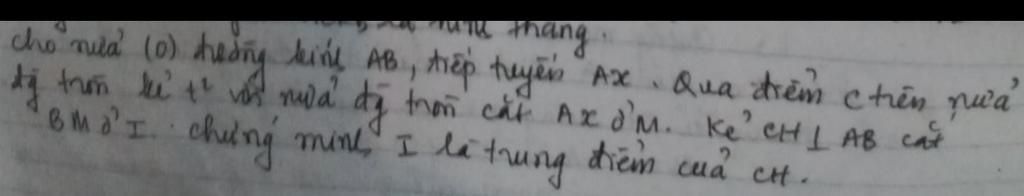 thẳng.
cho nửa (O) đường kính AB, tiếp tuyến Ax. Qua điểm C trên nửa
đg tròn kẻ t² với nửa đg tròn cắt Ax ở M. Kẻ CH ⊥ AB cắt
BM ở I. chứng minh I là trung điểm của CH.